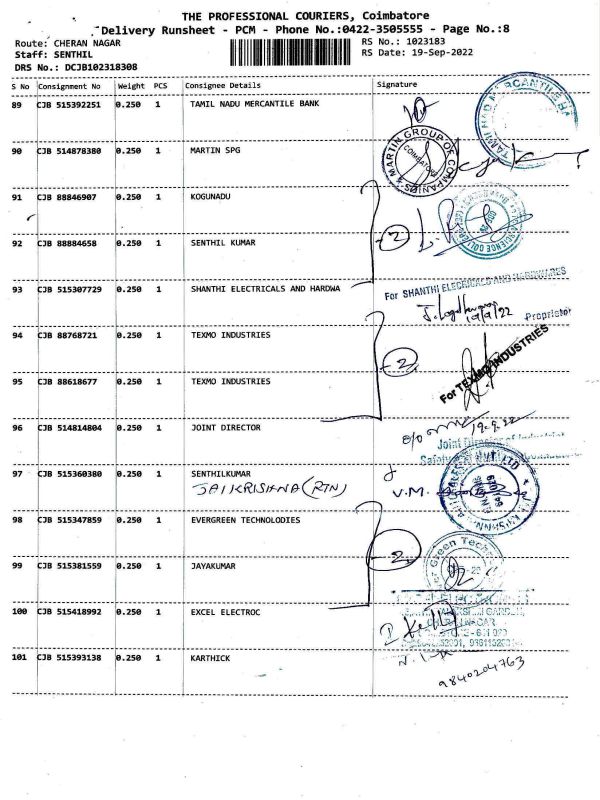 THE PROFESSIONAL COURIERS, Coimbatore
Delivery Runsheet - PCM - Phone No.:0422-3505555 - Page No.:8
Route: CHERAN NAGAR RS No.: 1023183
Staff: SENTHIL RS Date: 19-Sep-2022
DRS No.: DCJB102318308
S No Consignment No Weight PCS Consignee Details Signature
89 CJB 515392251 0.250 1 TAMIL NADU MERCANTILE BANK
TAMIL NAD MERCANTILE BA
90 CJB 514878380 0.250 1 MARTIN SPG
MARTIN GROUP OF COMPANIES
COIMBATORE
91 CJB 88846907 0.250 1 KOGUNADU
2
92 CJB 88884658 0.250 1 SENTHIL KUMAR
93 CJB 515307729 0.250 1 SHANTHI ELECTRICALS AND HARDWA
For SHANTHI ELECRICALS AND HARDWARES
19/9/22 Proprietor
94 CJB 88768721 0.250 1 TEXMO INDUSTRIES
2
For TEXMO INDUSTRIES
95 CJB 88618677 0.250 1 TEXMO INDUSTRIES
96 CJB 514814804 0.250 1 JOINT DIRECTOR
19.9.22
Joint Director of Industrial
97 CJB 515360380 0.250 1 SENTHILKUMAR
JAIKRISHNA (RTN) V.M.
98 CJB 515347859 0.250 1 EVERGREEN TECHNOLODIES
2
Green Tech
99 CJB 515381559 0.250 1 JAYAKUMAR
100 CJB 515418992 0.250 1 EXCEL ELECTROC
101 CJB 515393138 0.250 1 KARTHICK
9840204763